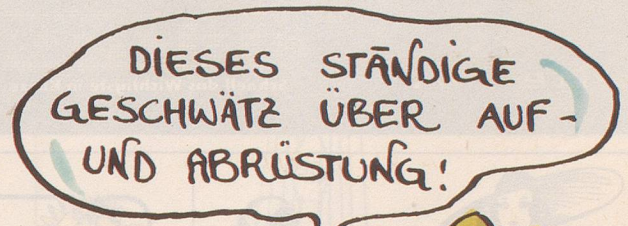 DIESES STÄNDIGE
GESCHWÄTZ ÜBER AUF-
UND ABRÜSTUNG!